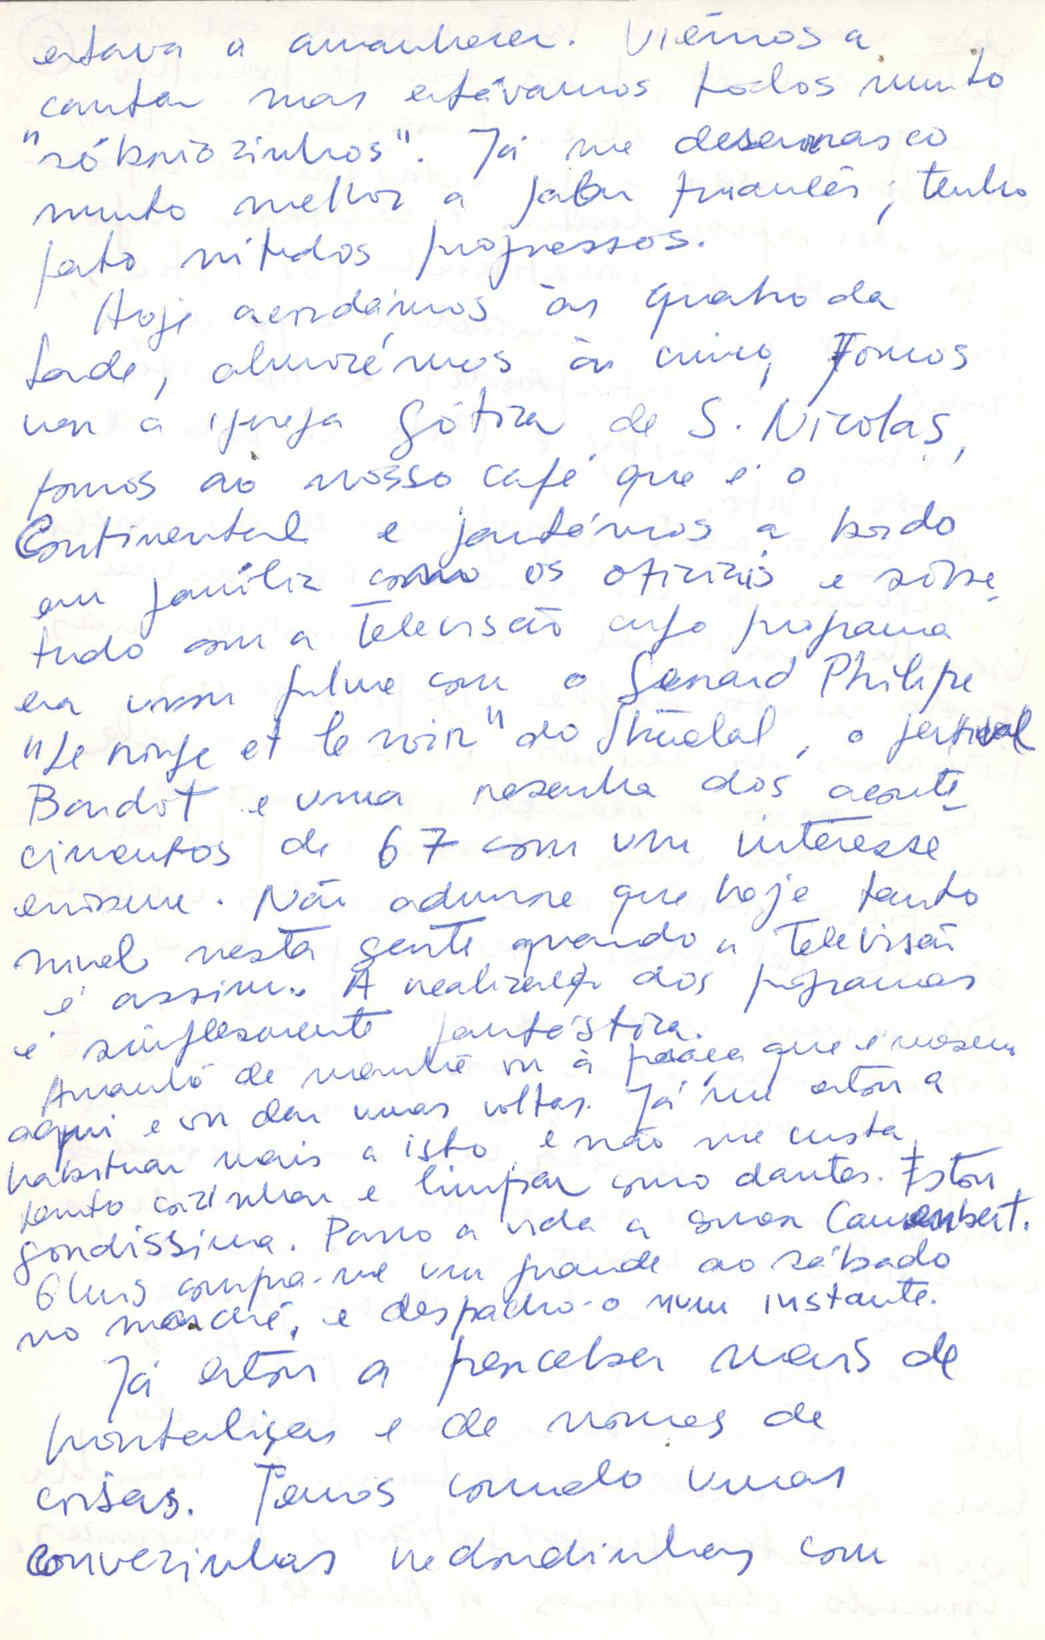 estava a amanhecer. Viémos a
cantar mas estávamos todos muito
"sóbriozinhos". Já me desenrasco
muito melhor a falar francês; tenho
feito nitidos progressos.
Hoje acordámos às quatro da
tarde, almoçámos às cinco, Fomos
ver a igreja Gótica de S. Nicolas,
fomos ao nosso café que é o
Continental e jantámos a bordo
em família com os oficiais e sobre
tudo com a Televisão cujo programa
era um filme com o Gerard Philipe
"Le rouge et le noir" do Sthendal, o festival
Bardot e uma resenha dos aconte_
cimentos de 67 com um interesse
enorme. Não admira que haja tanto
nivel nesta gente quando a Televisão
é assim. A realização dos programas
é simplesmente fantástica.
Amanhã de manhã vou à praça que é mesmo
aqui e vou dar umas voltas. Já me estou a
habituar mais a isto e não me custa
tanto cozinhar e limpar como dantes. Estou
gordissima. Passo a vida a comer Camembert.
O Luis compra-me um grande ao sábado
no marché, e despacho-o num instante.
Já estou a perceber mais de
hortaliças e de nomes de
coisas. Temos comido umas
couvezinhas redondinhas com